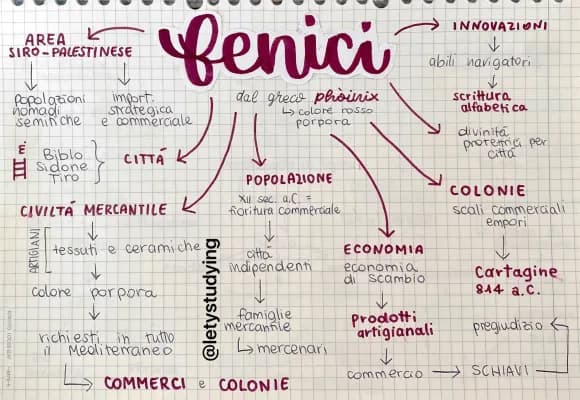 fenici
dal greco phòinix
colore rosso
porpora
AREA
SIRO-PALESTINESE
popolazioni
nomadi
semitiche
import.
strategica
e commerciale
CITTÀ
III mill.
Biblo
Sidone
Tiro
CIVILTÀ MERCANTILE
ARTIGIANI
tessuti e ceramiche
colore porpora
richiesti in tutto
il Mediterraneo
COMMERCI e COLONIE
POPOLAZIONE
XII sec. a.C. =
fioritura commerciale
città
indipendenti
famiglie
mercantile
mercenari
@letystudying
ECONOMIA
economia
di scambio
Prodotti
artigianali
commercio
SCHIAVI
pregiudizio
INNOVAZIONI
abili navigatori
scrittura
alfabetica
divinità
protettrici per
città
COLONIE
scali commerciali
empori
Cartagine
814 a.C.